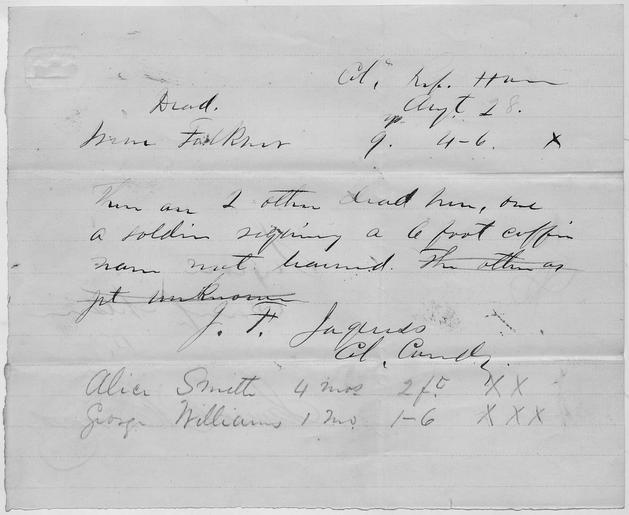 Col. Ref. Home
Dead. Augt. 28.
Faulkner 9. 4-6. X
There are 2 other dead here, one
a soldier requiring a 6 foot coffin
name not learned. The other as
yet unknown
J. F. Jaquess
Col. Comdg.
Alice Smith 4 mos 2 ft. XX
George Williams 1 mo. 1-6 XXX